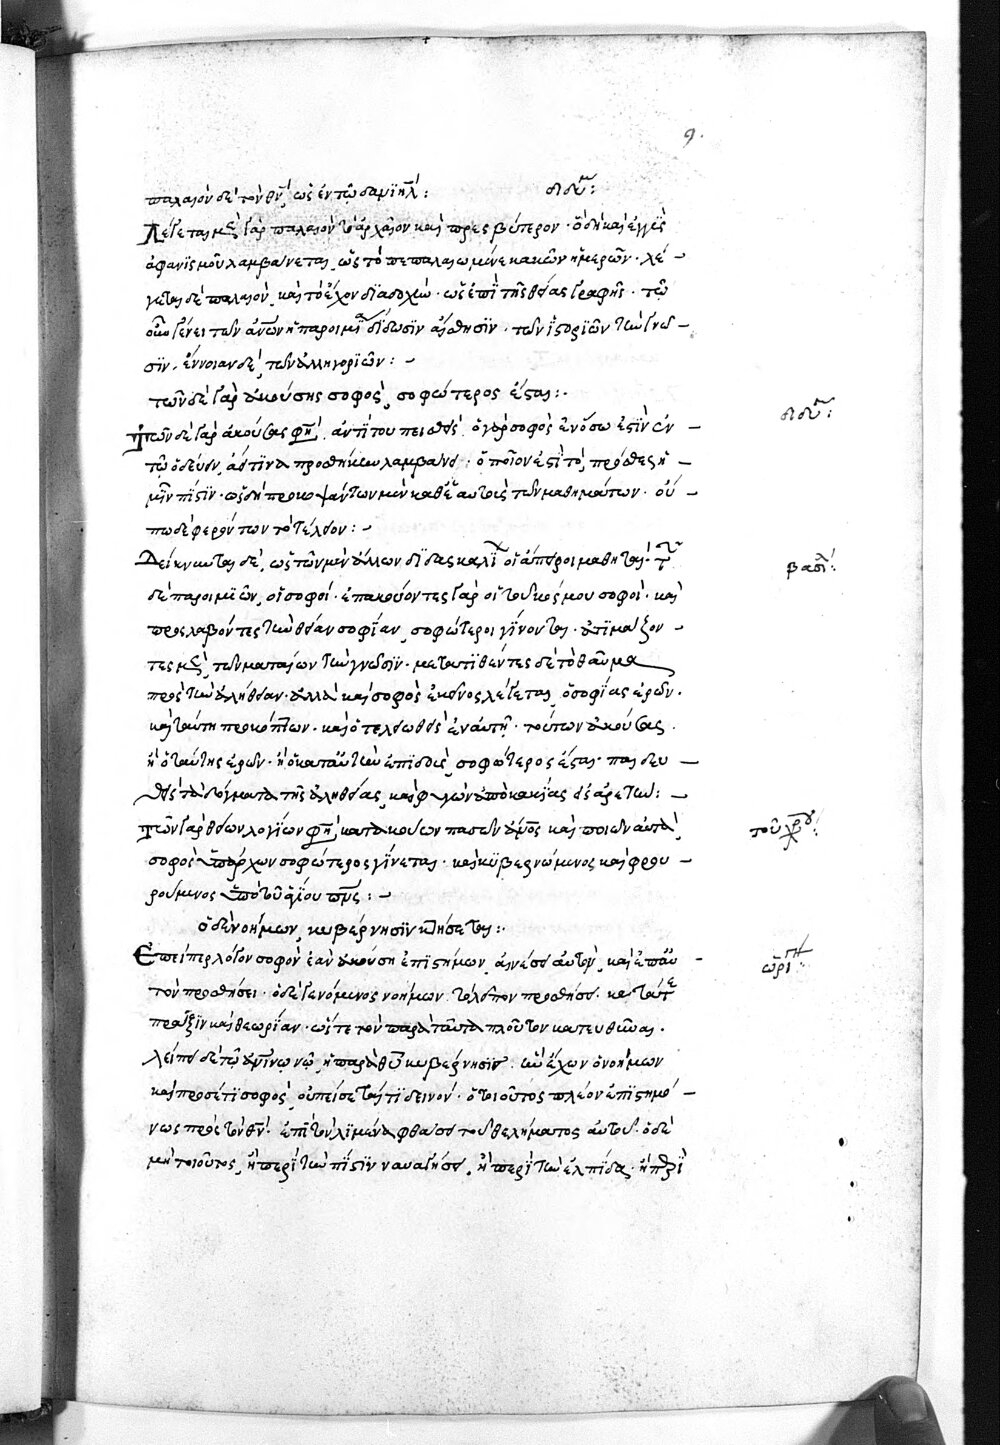 9.
παλαιὸν δὲ τὸν θν̅, ὡς ἐν τῷ δαμιὴλ: διδύ:
Λέγεται μὲν γὰρ παλαιὸν τὸ ἀρχαῖον καὶ πρεσβύτερον· ὃ δὴ καὶ ἐγγὺς
ἀφανισμοῦ λαμβάνεται, ὡς τὸ πεπαλαιωμένε κακῶν ἡμερῶν· λέ
γεται δὲ παλαιὸν, καὶ τὸ ἔχον διαδοχὴν· ὡς ἐπὶ τῆς θείας γραφῆς· τῷ
γένει τῶν ἀνων ἡ παροιμία δίδωσιν αἴσθησιν· τῶν ἱστοριῶν τὴν γνῶ
σιν. ἔννοιαν δὲ, τῶν ἀλληγοριῶν:
τῶνδε γὰρ ἀκούσης σοφὸς, σοφώτερος ἔσται:
τῶνδε γὰρ ἀκούσας φησὶ, ἀντὶ τοῦ πεισθεὶς· ὁ γὰρ σοφὸς ἐν ὅσω ἐστὶν ἐν
τῷ ὁδεύειν, ἀεί τινα προσθήκην λαμβάνει· ὁποῖόν ἐστι τὸ, πρόσθες ἡ
μῖν πίστιν· ὡς δὴ προκοψάντων μὲν καθ' ἑαυτοὺς τῶν μαθημάτων· οὔ
πω δὲ φερόντων τὸ τέλειον:
Δείκνυται δὲ, ὡς τῶν μὲν ἄλλων διδασκαλιῶν οἱ ἄπειροι μαθηταὶ· τῶν
δὲ παροιμιῶν, οἱ σοφοί· ἐπακούοντες γὰρ οἱ τοῦ κόσμου σοφοί· καὶ
προσλαβόντες τὴν θείαν σοφίαν, σοφώτεροι γίνονται·
τες μὲν, τῶν ματαίων τὴν γνῶσιν· μετατιθέντες δὲ τὸ θαῦμα
πρὸς τὴν ἀλήθειαν· ἀλλὰ καὶ σοφὸς ἐκεῖνος λέγεται, ὁ σοφίας ἐρῶν·
καὶ ταύτη προκόπτων· καὶ ὁ τελειωθεὶς ἐν αὐτῇ· τούτων ἀκούσας
ἢ ὁ ταύτης ἐρῶν· ἢ ὁ κατ' αὐτὴν ἐπιδοὺς, σοφώτερος ἔσται· παιδευ
θεὶς τὰ δόγματα τῆς ἀληθείας, καὶ φυγὼν ἀπὸ κακίας ἐξ ἀρετὴν:
τῶν γὰρ θείων λογίων φησὶ, κατακούων πασῶν καὶ ποιῶν αὐτὰ,
σοφὸς ὑπάρχων σοφώτερος γίνεται· καὶ κυβερνώμενος καὶ φρου
ρούμενος ὑπὸ τοῦ ἁγίου πνς:
ὁ δὲ νοήμων, κυβέρνησιν κτήσεται:
Ἐπείπερ λόγον σοφὸν ἐὰν ἀκούση ἐπιστήμων, αἰνέσει αὐτὸν, καὶ ἐπ' αὐ
τὸν προσθήσει· ὁ δὲ γενόμενος νοήμων τὸ λεῖπον προσθήσει·
πρᾶξιν καὶ θεωρίαν· ὥστε τὸν παρὰ ταῦτα πλοῦτον κατευθῦναι·
λείπει δὲ τῷ ἀνίνω νῷ, ἡ παρὰ θῦ κυβέρνησις· ἣν ἔχων ὁ νοήμων
καὶ προσέτι σοφὸς, οὐ πείσεταί τι δεινόν· ὁ τοιοῦτος πλέον ἐπιστημό
νως πρὸς τὸν θν· ἐπὶ τὸν λιμένα φθάσει τοῦ θελήματος αὐτοῦ· ὁ δὲ
μὴ τοιοῦτος, ἢ περὶ τὴν πίστιν ναυαγήσει, ἢ περὶ τὴν ἐλπίδα· ἢ περὶ
διδύ:
βασιλ:
τοῦ χρυ:
ὠριγ: